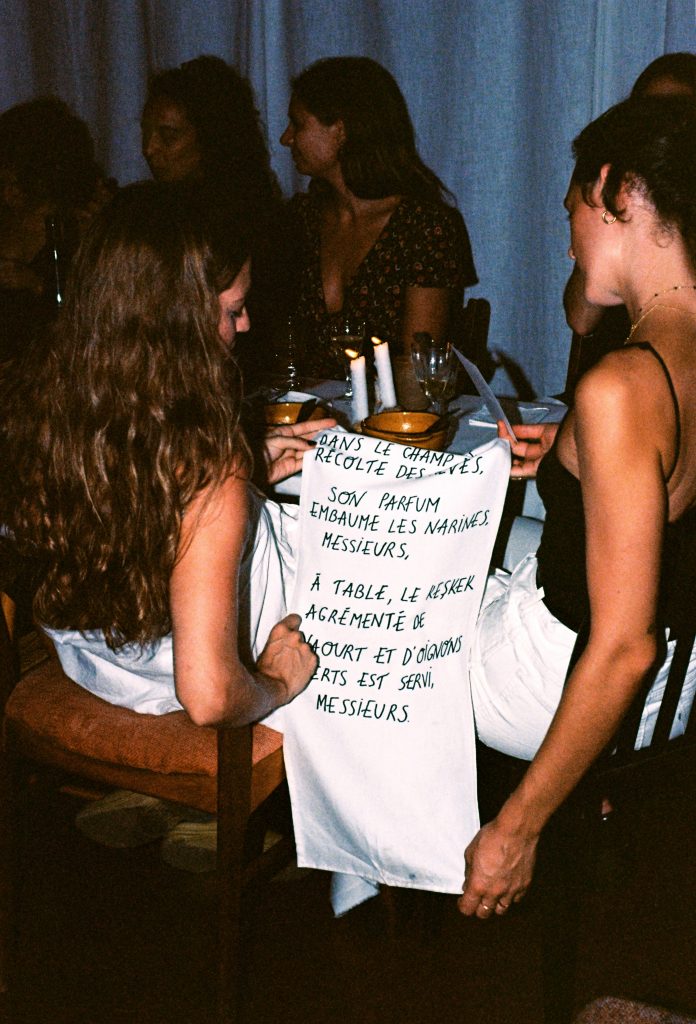 DANS LE CHAMP
RÉCOLTE DES
SON PARFUM
EMBAUME LES NARINES,
MESSIEURS,
À TABLE, LE RESKEK
AGRÉMENTÉ DE
ET D'OIGNONS
EST SERVI,
MESSIEURS.